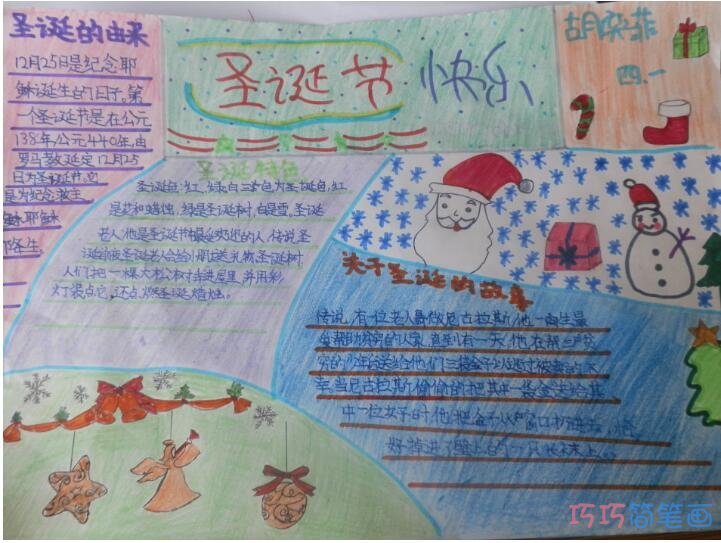 圣诞的由来
12月25日是纪念耶
稣诞生的日子。第
一个圣诞节是在公元
138年公元440年,由
罗马教廷定12月25
日为圣诞节,它
是为纪念救主
耶稣
降生。
圣诞节 快乐
四.一
圣诞特色
圣诞色:红、绿、白三种色为圣诞色,红
是花和蜡烛,绿是圣诞树,白是雪。圣诞
老人:他是圣诞节最受欢迎的人,传说圣
诞前夜圣诞老人会给小朋友送礼物。圣诞树:
人们把一棵大松树卡进屋里,并用彩
灯装点它,还点燃圣诞蜡烛。
关于圣诞的故事
传说,有一位老人名叫做尼古拉斯,他一生最
爱帮助贫穷的人家,直到有一天,他在帮三户贫
穷的少年
幸,当尼古拉斯偷偷的把其中一袋金送给其
中一位女子时,他把金子从窗口扔进去,恰
好掉进了壁上的一只长袜上。
巧巧简笔画